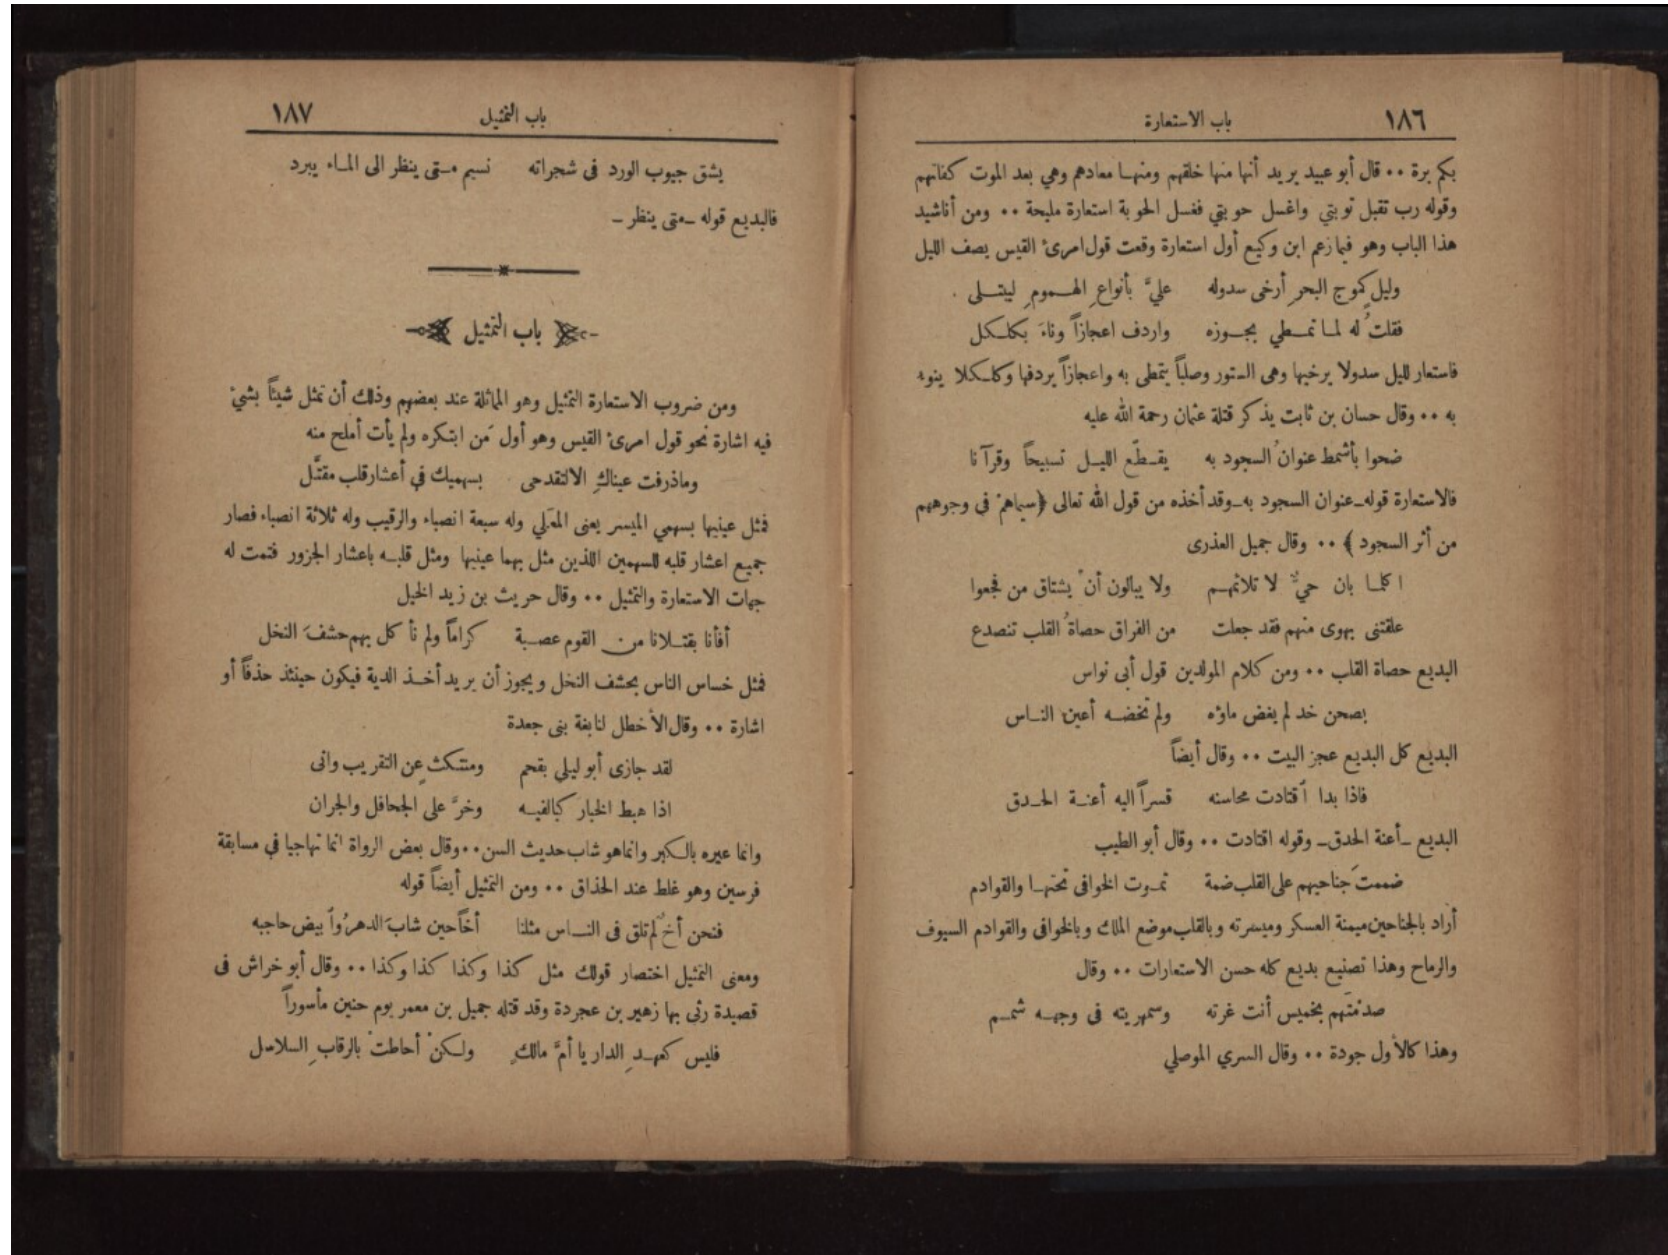 ١٨٦ باب الاستعارة
بكم برة ٠٠ قال أبو عبيد يريد أنها منها خلقهم ومنهـا معادهم وهي بعد الموت كفاتهم
وقوله رب تقبل توبتي واغسل حوبتي فغسل الحوبة استعارة مليحة ٠٠ ومن أناشيد
هذا الباب وهو فيما زعم ابن وكيع أول استعارة وقعت قول امرئ القيس يصف الليل
وليلٍ كموج البحرِ أرخى سدوله عليَّ بأنواعِ الهـمومِ ليبتـلى
فقلتُ له لمـا تمـطي بجـوزه واردف اعجازاً وناءَ بكلـكل
فاستعار لليل سدولا يرخيها وهى الستور وصلباً يتمطى به واعجازاً يردفها وكلـكلا ينوء
به ٠٠ وقال حسان بن ثابت يذكر قتلة عثمان رحمة الله عليه
ضحوا بأشمط عنوانُ السجود به يقـطّع الليـل تسبيحاً وقرآنا
فالاستعارة قوله ـ عنوان السجود به ـ وقد أخذه من قول الله تعالى ﴿سيماهمْ في وجوههم
من أثر السجود ﴾ ٠٠ وقال جميل العذرى
اكلمـا بان حيٌّ لا تلائمهـم ولا يبالون أنْ يشتاق من فجعوا
علقتنى بهوى منهم فقد جعلت من الفراق حصاةُ القلب تنصدع
البديع حصاة القلب ٠٠ ومن كلام المولدين قول أبى نواس
بصحن خد لم يغض ماؤه ولم تخضـه أعين النـاس
البديع كل البديع عجز البيت ٠٠ وقال أيضاً
فاذا بدا اقتادت محاسنه قسراً اليه أعنـة الحـدق
البديع ـ أعنة الحدق ـ وقوله اقتادت ٠٠ وقال أبو الطيب
ضممتَ جناحيهم على القلب ضمة تمـوت الخوافى تحتهـا والقوادم
أراد بالجناحين ميمنة العسكر وميسرته وبالقلب موضع الملك وبالخوافى والقوادم السيوف
والرماح وهذا تصنيع بديع كله حسن الاستعارات ٠٠ وقال
صدمتَهم بخميس أنت غرته وسمهريته فى وجهـه شمـم
وهذا كالأول جودة ٠٠ وقال السري الموصلي
باب التمثيل ١٨٧
يشق جيوب الورد فى شجراته نسيم مـتى ينظر الى المـاء يبرد
فالبديع قوله ـ متى ينظر ـ
باب التمثيل
ومن ضروب الاستعارة التمثيل وهو المماثلة عند بعضهم وذلك أن تمثل شيئاً بشئ
فيه اشارة نحو قول امرئ القيس وهو أول مَن ابتكره ولم يأت أملح منه
وماذرفت عيناكِ الا لتقدحى بسهميك في أعشار قلب مقتَّل
فمثل عينيها بسهمي الميسر يعنى المعلي وله سبعة انصباء والرقيب وله ثلاثة انصباء فصار
جميع اعشار قلبه للسهمين اللذين مثل بهما عينيها ومثل قلبـه باعشار الجزور فتمت له
جهات الاستعارة والتمثيل ٠٠ وقال حريث بن زيد الخيل
أفأنا بقتـلانا من القوم عصـبة كراماً ولم نأكل بهم حشفَ النخل
فمثل خساس الناس بحشف النخل ويجوز أن يريد أخـذ الدية فيكون حينئذ حذفاً أو
اشارة ٠٠ وقال الأخطل لنابغة بنى جعدة
لقد جازى أبو ليلي بقحم ومنتكثٍ عن التقريب وانى
اذا هبط الخبار كبا لفيـه وخرَّ على الجحافل والجران
وانما عيره بالـكبر وانما هو شاب حديث السن ٠٠ وقال بعض الرواة انما تهاجيا في مسابقة
فرسين وهو غلط عند الحذاق ٠٠ ومن التمثيل أيضاً قوله
فنحن أخٌ لم تلق فى النـاس مثلنا أخاً حين شابَ الدهرُ وابيض حاجبه
ومعنى التمثيل اختصار قولك مثل كذا وكذا كذا وكذا ٠٠ وقال أبو خراش فى
قصيدة رثى بها زهير بن عجردة وقد قتله جميل بن معمر يوم حنين مأسوراً
فليس كعهـدِ الدار يا أمَّ مالكٍ ولـكنْ أحاطتْ بالرقابِ السلاسل